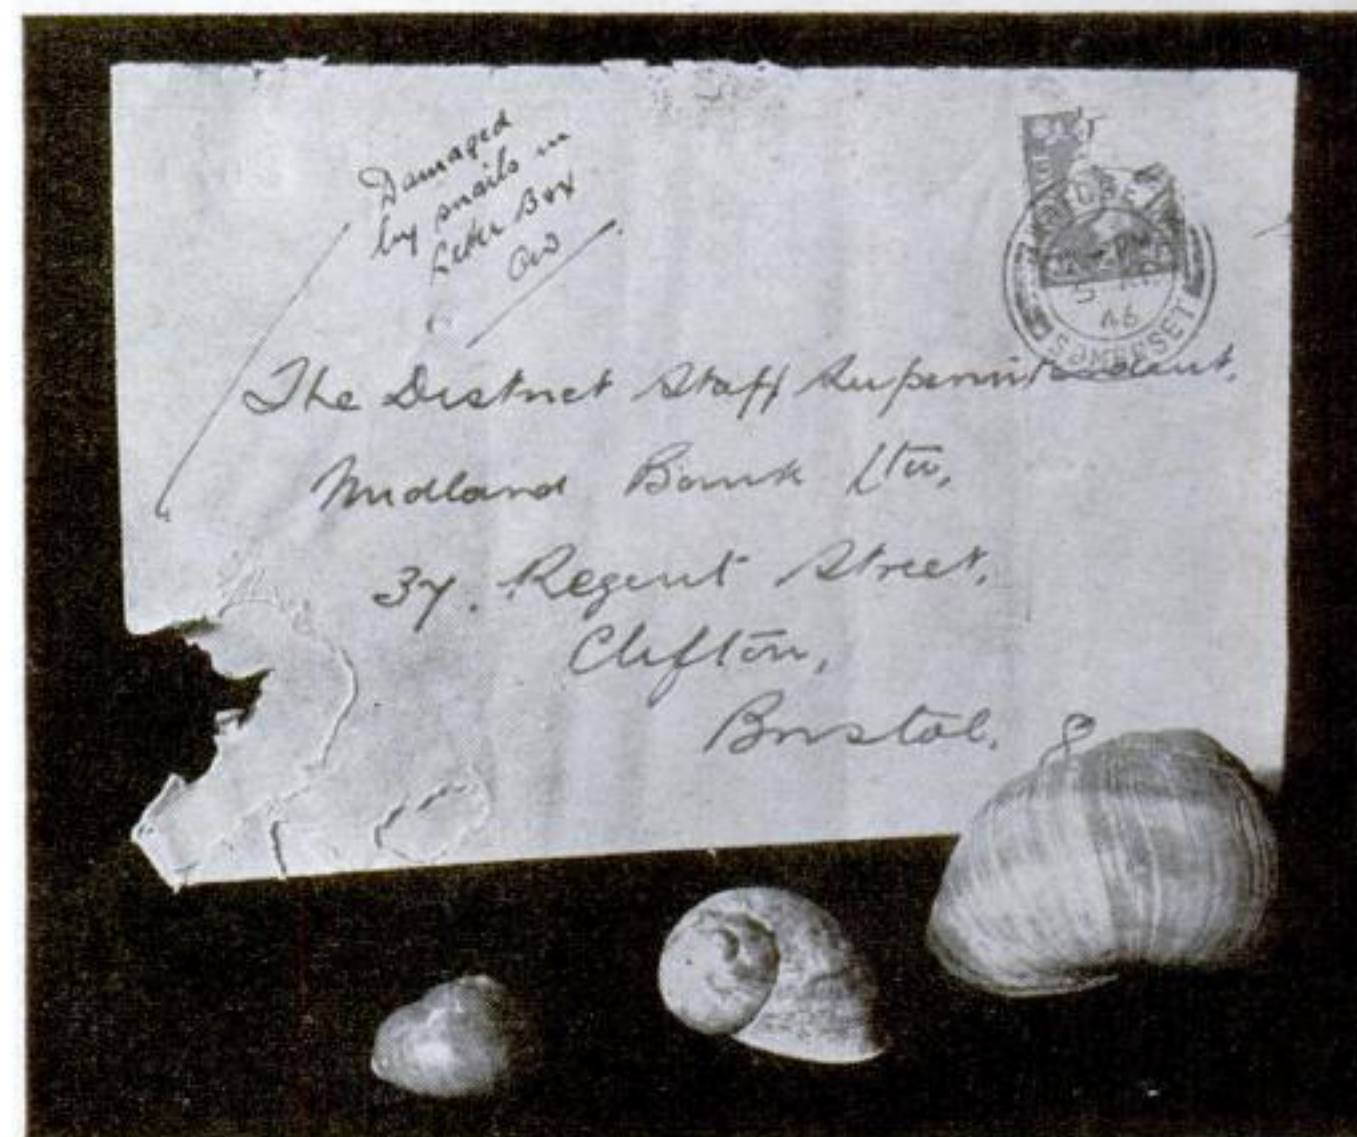 Damaged
by snails in
Letter Box
The District Staff Superintendent,
Midland Bank Ltd,
37. Regent Street,
Clifton,
Bristol. 8
46
SOMERSET